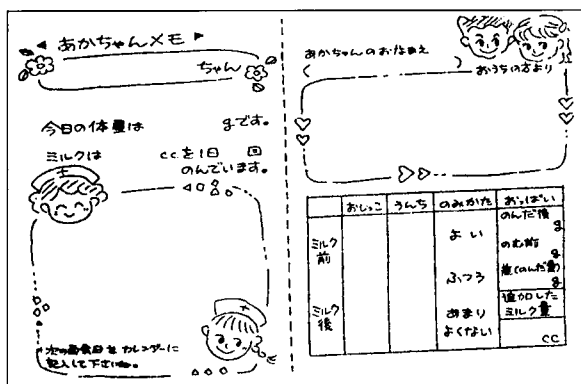 あかちゃんメモ
ちゃん
今日の体重は gです。
ミルクは ccを1日 回
のんでいます。
次の面会日をカレンダーに
記入して下さいね。
あかちゃんのおなまえ
( )
おうちの方より
おしっこ うんち のみかた おっぱい
ミルク前
よい
ふつう
のんだ後 g
のむ前 g
差(のんだ量) g
ミルク後
あまりよくない
追加した
ミルク量
cc